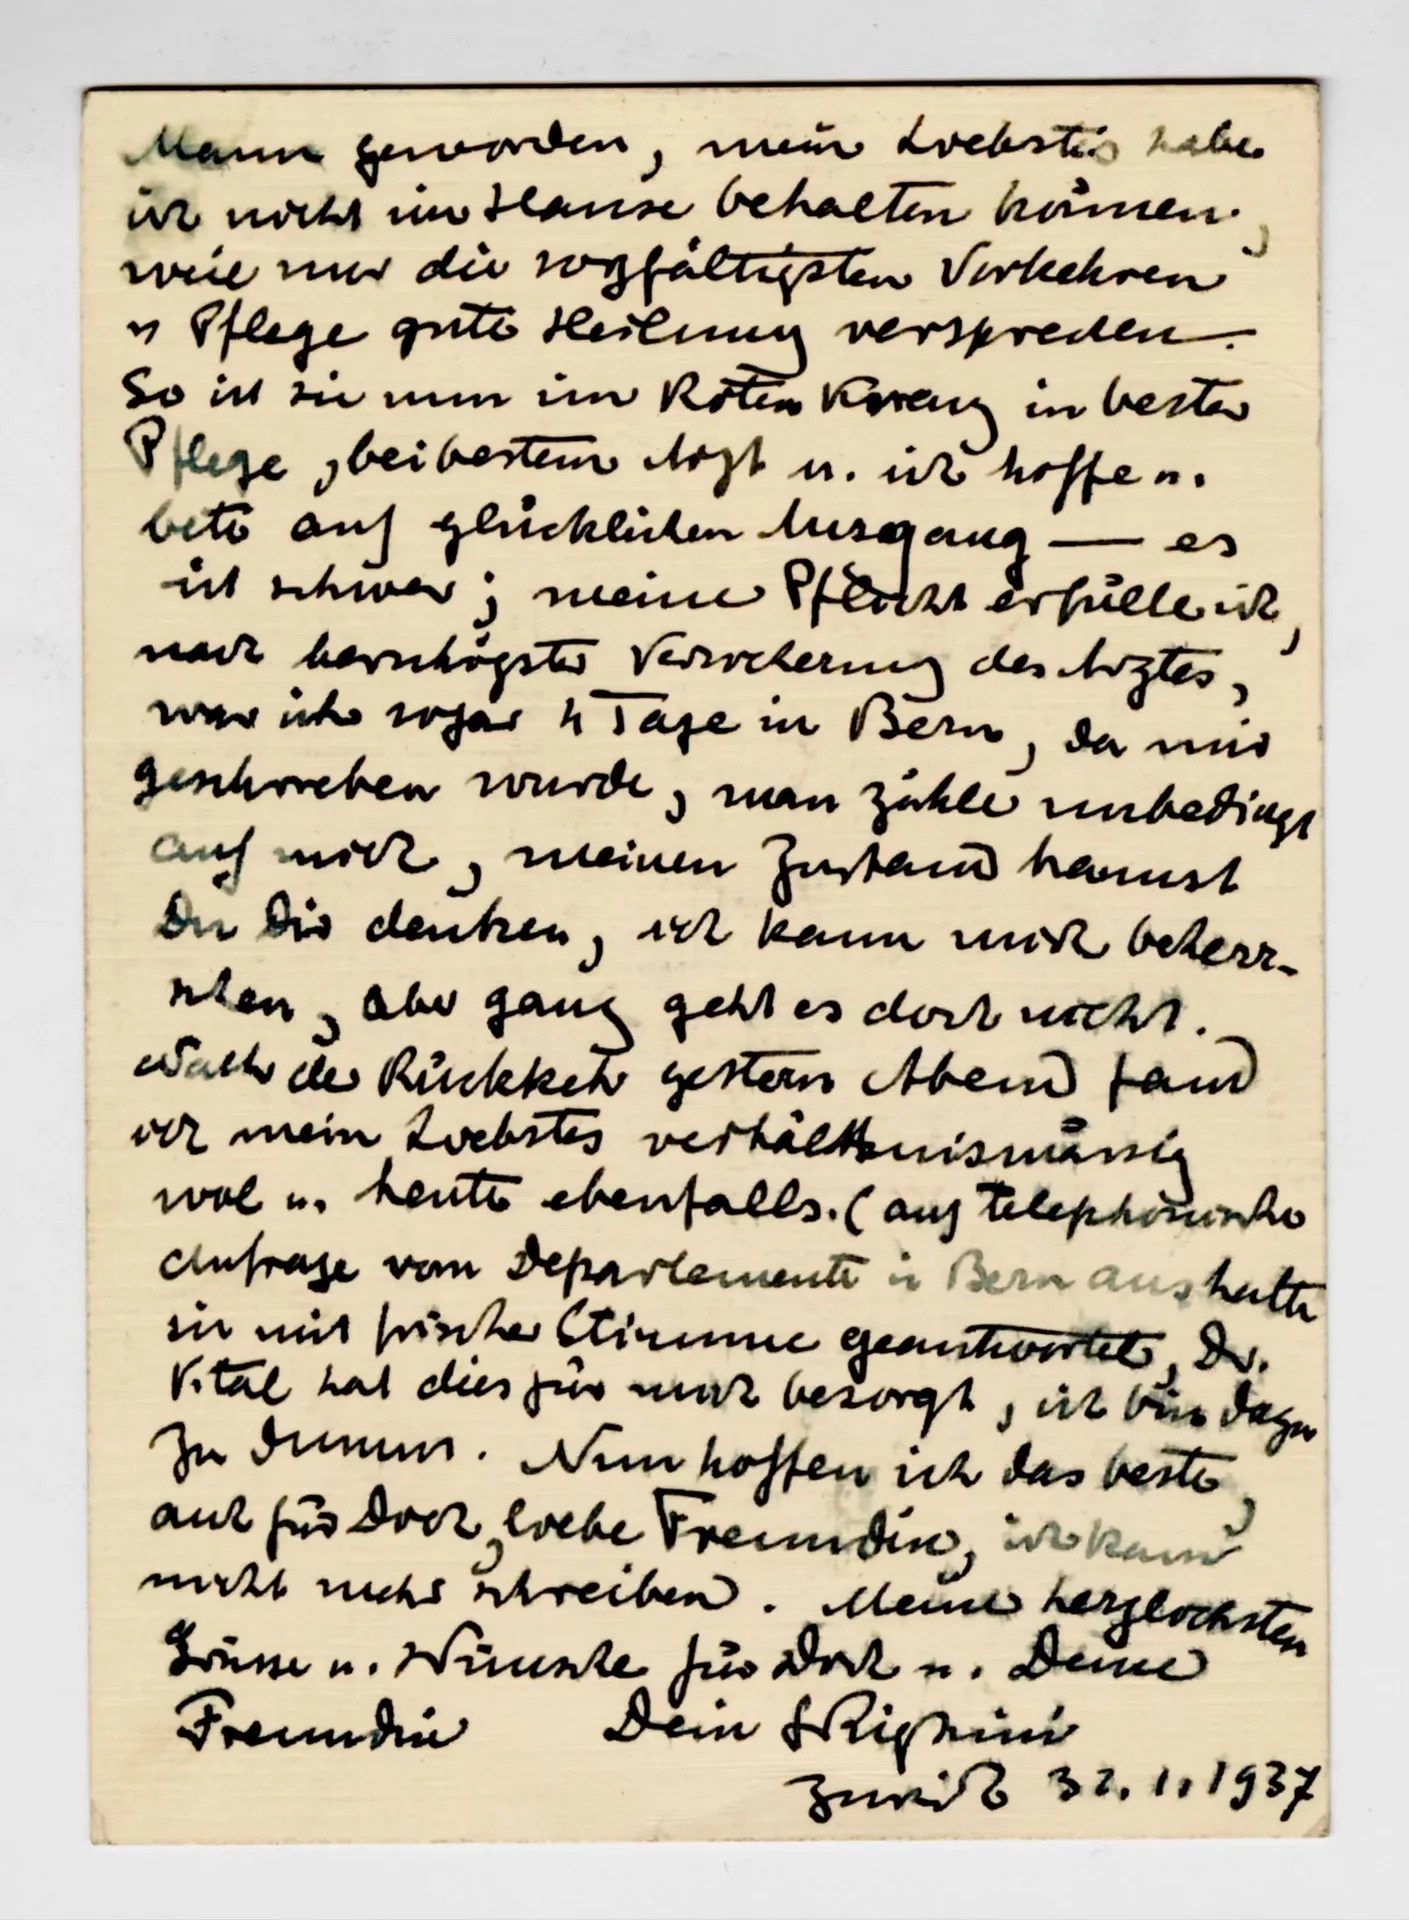 Mann geworden, mein Liebstes habe
ich nicht im Hause behalten können,
weil nur die sorgfältigsten Vorkehren
u Pflege gute Heilung versprechen.
So ist sie nun im Roten Kreuz in bester
Pflege, bei bestem Arzt u. ich hoffe u.
bete auf glücklichen Ausgang — es
ist schwer; meine Pflicht erfülle ich,
nach Versicherung des Arztes,
war ich sogar 4 Tage in Bern, da mir
geschrieben wurde, man zähle unbedingt
auf mich, meinen Zustand kannst
Du Dir denken, ich kann mich beherr-
schen, aber ganz geht es doch nicht.
Nach der Rückkehr gestern Abend fand
ich mein Liebstes verhältnismässig
wol u. heute ebenfalls. (auf telephonische
Anfrage vom Departemente in Bern aus hatte
sie mit frischer Stimme geantwortet, Dr.
Vital hat dies für mich besorgt, ich bin dazu
zu dumm. Nun hoffen ich das beste,
auch für Dich, liebe Freundin, ich kann
nicht mehr schreiben. Meine herzlichsten
Grüsse u. Wünsche für Dich u. Deine
Freundin Dein SRighini
Zürich 31. 1. 1937